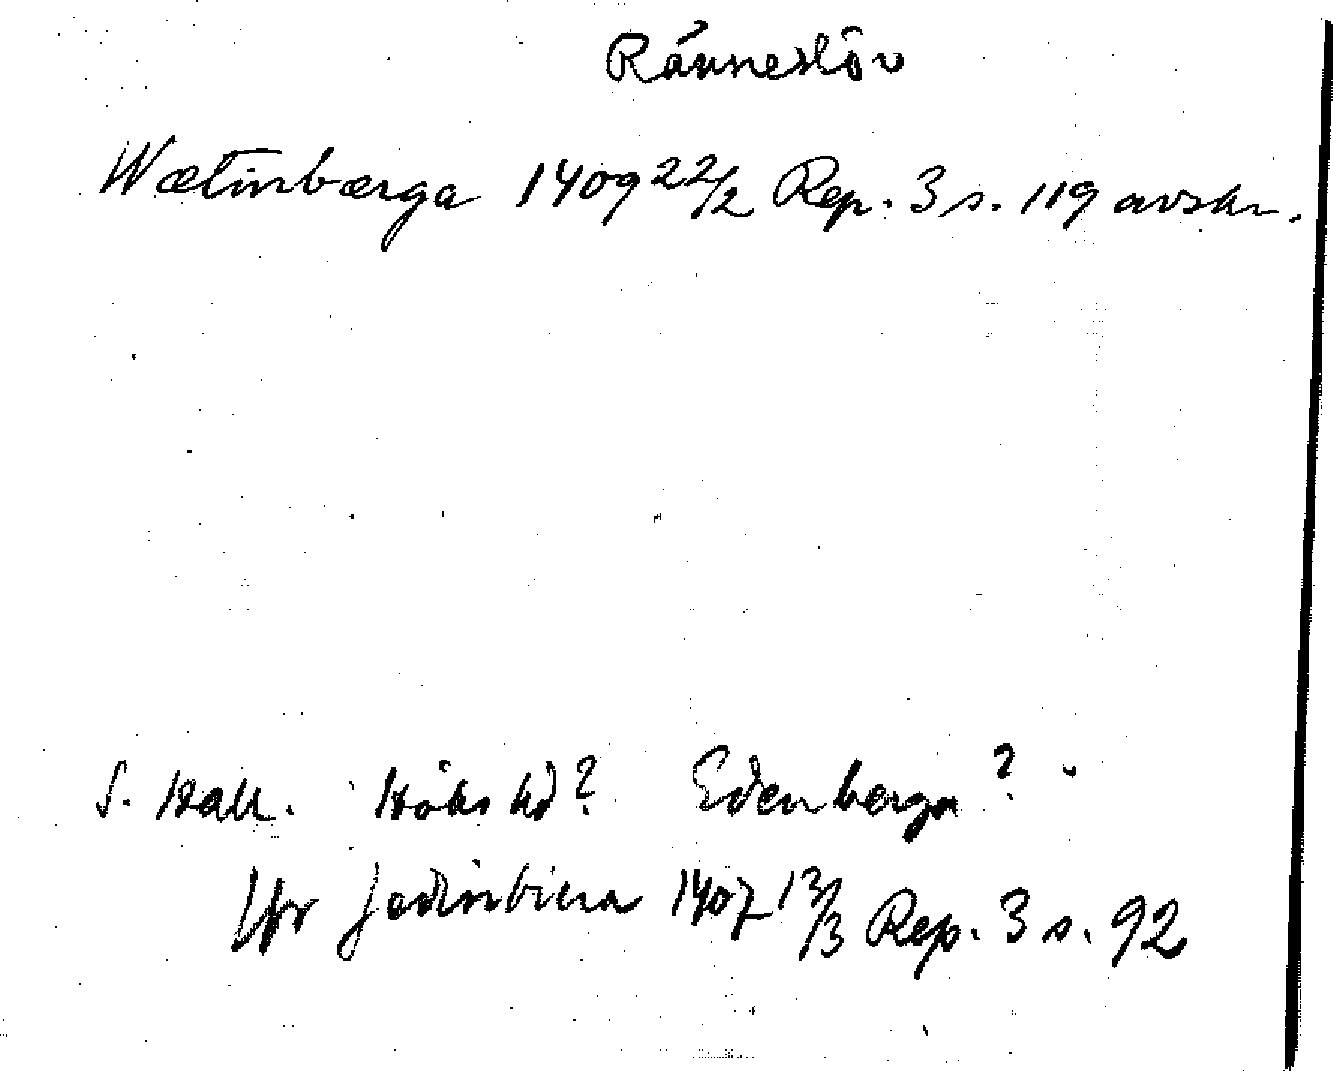 Ränneslöv
Wætinbærga 1409 22/2 Rep. 3 s. 119 avskr.
S. Hall. Höks hd? Edenberga?
Jfr Jedinbiera 1407 13/3 Rep. 3 s. 92